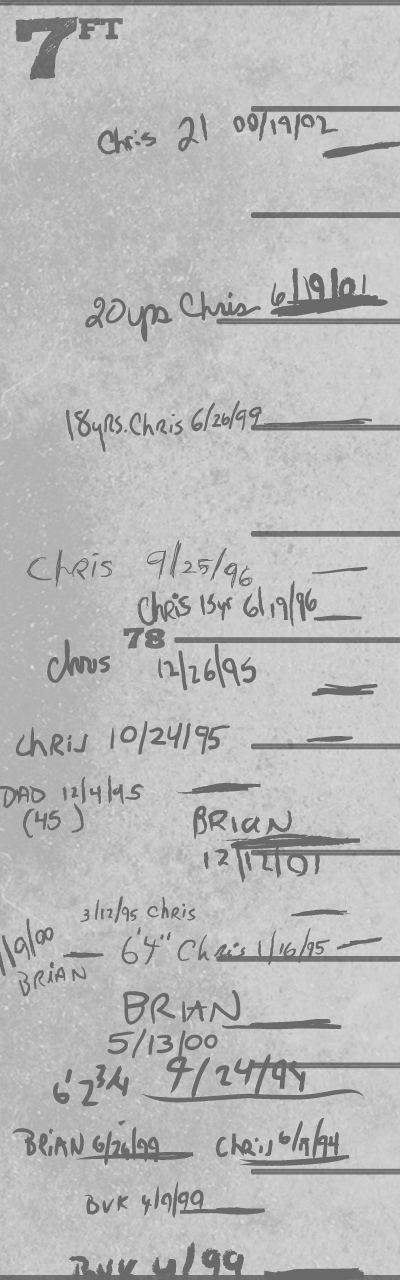 7 FT
Chris 21 09/19/02
20yrs Chris 6/19/01
18yrs. Chris 6/26/99
Chris 9/25/96
Chris 15yr 6/19/96
78
Chris 12/26/95
Chris 10/24/95
DAD 12/4/95
(45)
BRIAN
12/12/01
3/12/95 Chris
/9/00
BRIAN
6'4" Chris 1/16/95
BRIAN
5/13/00
6' 2 3/4 9/24/94
BRIAN 6/26/99 Chris 6/19/94
BVK 4/9/99
BVK 4/99